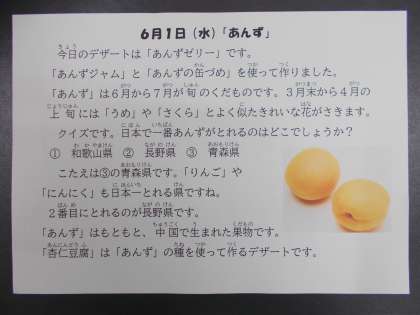 6月1日（水）「あんず」
今日のデザートは「あんずゼリー」です。
「あんずジャム」と「あんずの缶づめ」を使って作りました。
「あんず」は6月から7月が旬のくだものです。3月末から4月の
上旬には「うめ」や「さくら」とよく似たきれいな花がさきます。
クイズです。日本で一番あんずがとれるのはどこでしょうか？
① 和歌山県 ② 長野県 ③ 青森県
こたえは③の青森県です。「りんご」や
「にんにく」も日本一とれる県ですね。
2番目にとれるのが長野県です。
「あんず」はもともと、中国で生まれた果物です。
「杏仁豆腐」は「あんず」の種を使って作るデザートです。